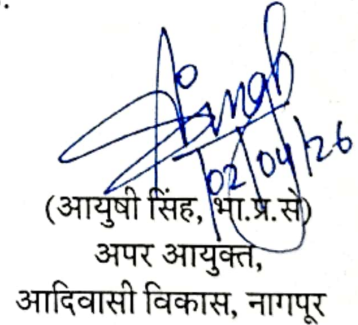 Singh
02/04/26
(आयुषी सिंह, भा.प्र.से)
अपर आयुक्त,
आदिवासी विकास, नागपूर